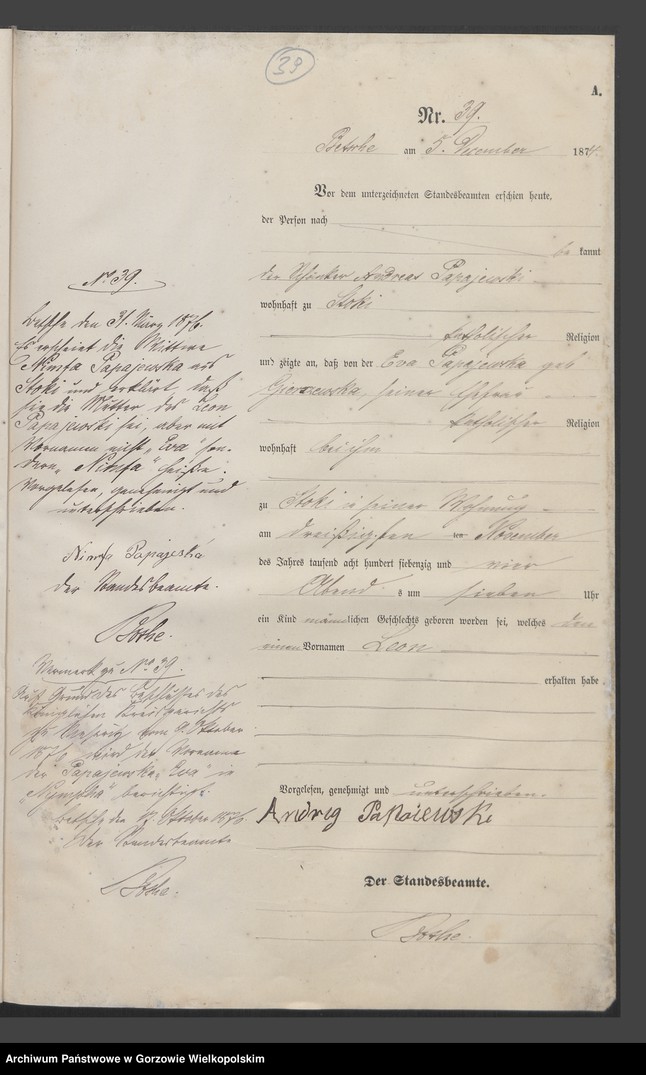 39
A.
Nr. 39.
Betsche am 5. Dezember 1874.
Vor dem unterzeichneten Standesbeamten erschien heute,
der Person nach
be kannt
der Schänker Andreas Papajewski
wohnhaft zu Stoki
katholischer Religion
und zeigte an, daß von der Eva Papajewska geb
seiner Ehefrau
katholischer Religion
wohnhaft bei ihm
zu Stoki in seiner Wohnung
am dreißigsten ten November
des Jahres tausend acht hundert siebenzig und vier
Abend s um sieben Uhr
ein Kind männlichen Geschlechts geboren worden sei, welches den
einen Vornamen Leon
erhalten habe
Vorgelesen, genehmigt und unterschrieben.
Andreg Papaiewski
Der Standesbeamte.
Bothe.
No 39.
Betsche den 31. März 1876.
Es erscheint die Wittwe
Nimfa Papajewska aus
Stoki und erklärt daß
sie die Mutter des Leon
Papajewski sei, aber mit
Vornamen nicht „Eva“ son-
dern „Nimfa“ heiße.
Vorgelesen, genehmigt und
unterschrieben.
Nimfa Papajeska
Der Standesbeamte.
Bothe.
Vermerk zu No 39.
Auf Grund des Beschlusses des
Königlichen Kreisgerichts
zu Meseritz vom 9. Oktober
1876 wird der Vorname
der Papajewska „Eva“ in
„Nympha“ berichtigt.
Betsche den Oktober 1876
Der Standesbeamte
Bothe.
Archiwum Państwowe w Gorzowie Wielkopolskim